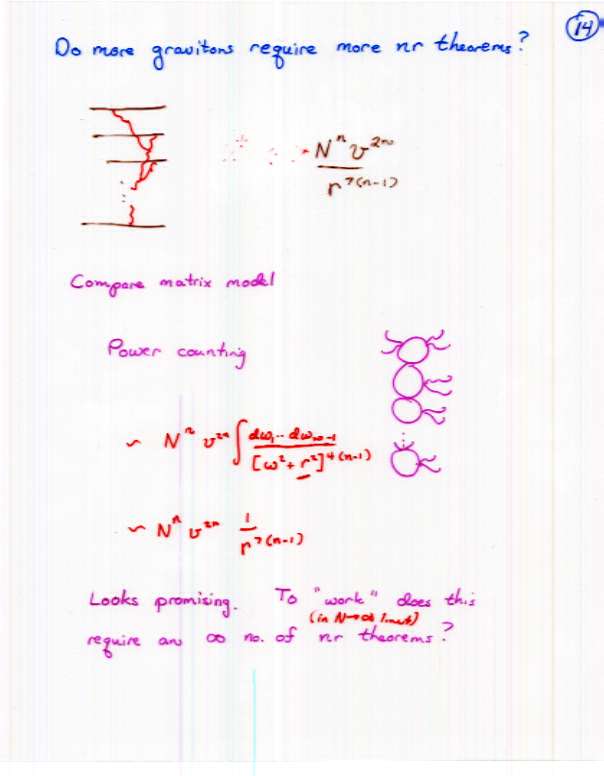 14
Do more gravitons require more nr theorems?
N^n v^{2n}
r^{7(n-1)}
Compare matrix model
Power counting
~ N^n v^{2n} ∫ dω_1 ... dω_{n-1}
[ω^2 + r^2]^{4(n-1)}
~ N^n v^{2n} 1
r^{7(n-1)}
Looks promising. To "work" does this
(in N→∞ limit)
require an ∞ no. of nr theorems?